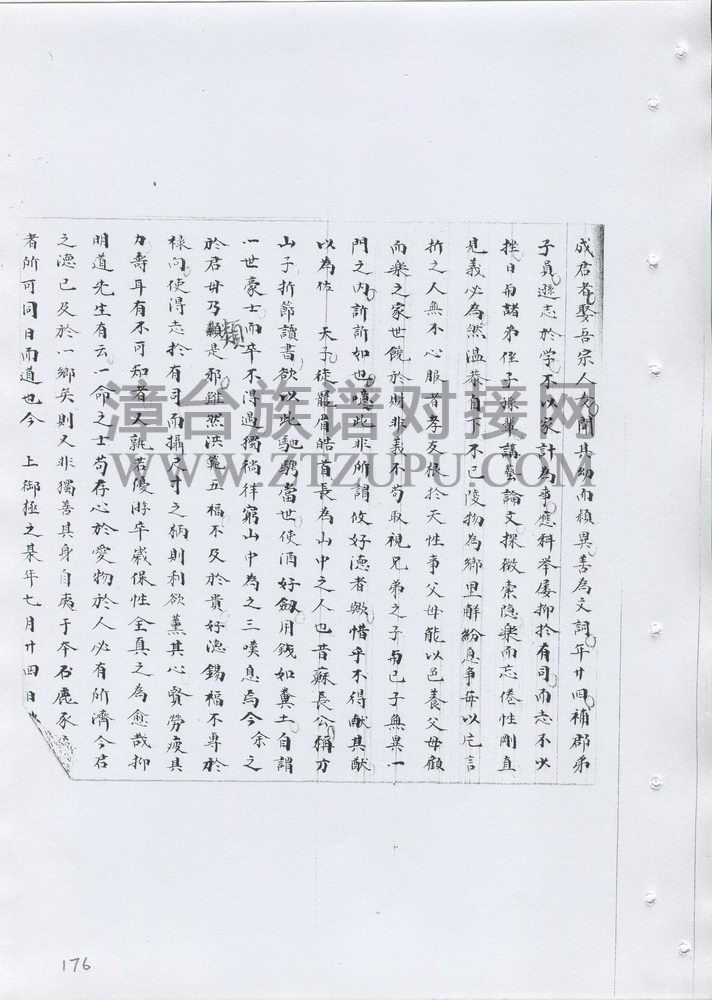 成君者娶吾宗人久聞其幼而頴異善為文詞年廿四補郡弟
子員遜志於学不以家計為事應科举屡抑扵有司而志不少
挫日與諸弟侄子孫輩講藝論文探微索隐樂而忘倦性剛直
見義必為然温恭自下不已陵物為鄉里解紛息争每以片言
折之人無不心服者孝友根於天性事父母能以色養父母顧
而樂之家世饒於財非義不苟取視兄弟之子與己子無異一
門之内訢訢如也噫此非所謂攸好德者歟惜乎不得献其猷
以為佐 天子徒龎眉皓首長為山中之人也昔蘇長公稱方
山子折節讀書欲以此馳騁當世使酒好劔用錢如糞土自謂
一世豪士而卒不得遇獨徜徉窮山中為之三嘆息焉今余之
於君毋乃類是邪雖然洪範五福不及於貴好德錫福不專於
類
禄向使得志於有司而攝尺寸之柄則利欲薰其心賢勞疲其
力壽耳有不可知者又孰若優游卒歲保性全真之為愈哉抑
明道先生有云一命之士苟存心於愛物於人必有所濟今君
之德已及於一鄉矣則又非獨善其身自夷于本石鹿豕
者所可同日而道也今 上御極之朞年七月廿四日
漳台族谱对接网
WWW.ZTZUPU.COM
176